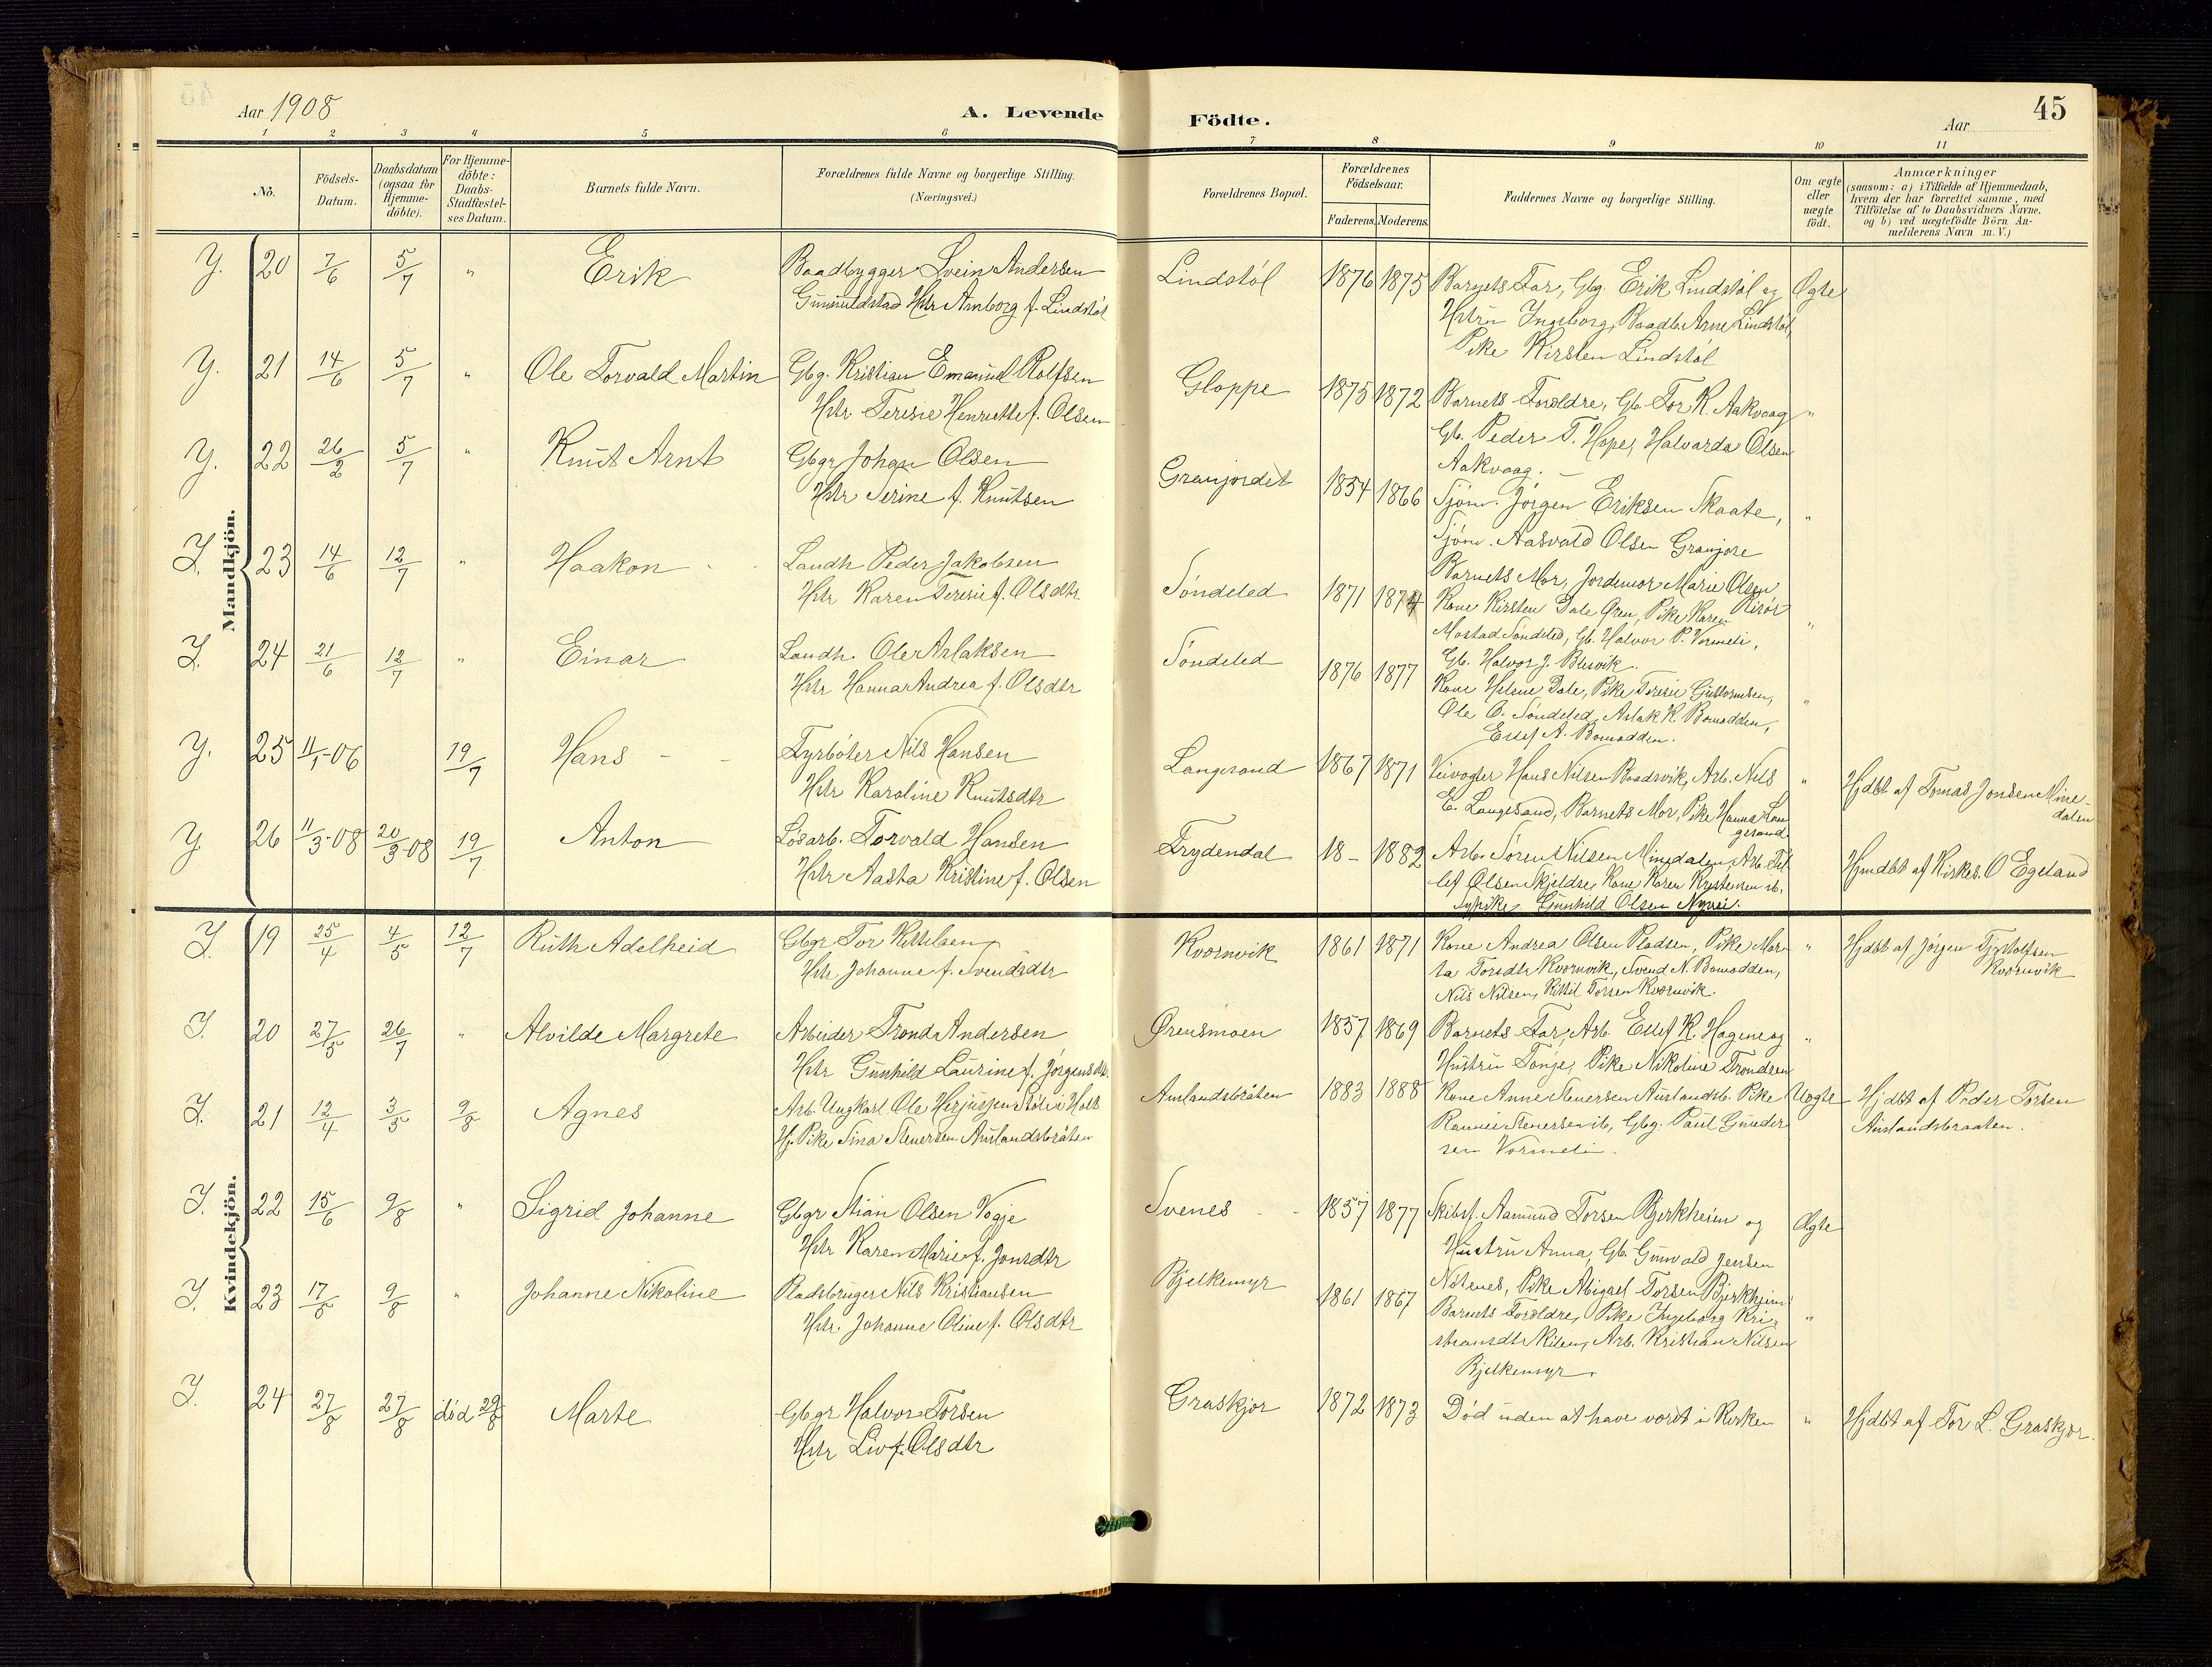 45
Aar 1908
A. Levende
Födte.
Aar
1 2 3 4 5 6 7 8 9 10 11
No.
Födsels-
Datum.
Daabsdatum
(ogsaa for
Hjemme-
döbte).
For Hjemme-
döbte:
Daabs-
Stadfæstel-
ses Datum.
Barnets fulde Navn.
Forældrenes fulde Navne og borgerlige Stilling.
(Næringsvei.)
Forældrenes Bopæl.
Forældrenes
Födselsaar.
Faderens. Moderens.
Faddernes Navne og borgerlige Stilling.
Om ægte
eller
uægte
födt.
Anmærkninger
(saasom: a) i Tilfælde af Hjemmedaab,
hvem der har forrettet samme, med
Tilföielse af to Daabsvidners Navne,
og b) ved uægtefödte Börn An-
melderens Navn m. V.)
Mandkjön.
Y. 20 7/6 5/7 " Erik
Baadbygger Svein Andersen
Gunuldstad Hstr Amborg f. Lindstøl
Lindstøl 1876 1875
Barnets Far, Gbg. Erik Lindstøl og
Hstru Ingeborg, Baadb. Arne Lindstøl,
Pike Kirsten Lindstøl
Ægte
Y. 21 14/6 5/7 " Ole Torvald Martin
Gbg. Kristian Emanuel Rolfsen
Hstr. Teresie Henriette f. Olsen
Gloppe 1875 1872
Barnets Foreldre, Gb. Tor K. Aakvaag
Gb. Peder T. Hope, Halvarda Olsen
Aakvaag.
"
Y. 22 26/2 5/7 " Knut Arnt
Gbgr Johan Olsen
Hstr Terine f. Knutsen
Granjordet 1854 1866
Sjöm. Jörgen Eriksen Skaate,
Sjöm. Aasvald Olsen Granjore
Barnets Mor, Jordemor Marie Olsen
Risör
"
I. 23 14/6 12/7 " Haakon
Landh. Peder Jakobsen
Hstr Karen Teresie f. Olsdtr
Söndeled 1871 1874
Kone Kirsten Dale Gren, Pike Karen
Mostad Söndeled, Gb. Halvor P. Vormeli,
Gb. Halvor J. Blesvik.
"
I. 24 21/6 12/7 " Einar
Landh. Ole Aslaksen
Hstr Hanna Andrea f. Olsdtr
Söndeled 1876 1877
Kone Helene Dale, Pike Teresie Guttormsen,
Ole O. Söndeled, Aslak K. Bomodden,
Ellef A. Bomodden.
"
Y. 25 11/1-06 19/7 Hans
Fyrböter Nils Hansen
Hstr Karoline Knutsdtr
Langsand 1867 1871
Veivogter Hans Nilsen Baasvik, Arb. Nils
E. Langesand, Barnets Mor, Pike Hanna Lan
gesand
"
Hjdbt af Tomas Jonsen Mine-
dalen
Y. 26 11/3-08 20/3-08 19/7 Anton
Løsarb. Torvald Hansen
Hstr Aasta Kristine f. Olsen
Frydendal 18- 1882
Arb. Sören Nilsen Minedalen, Arb. Det
lef Olsen Skjeldre, Kone Karen Kristensen ib.
Sypike Gunhild Olsen Nyvei.
Hjmdbt af Kirkes. O Egeland
Kvindekjön.
I. 19 25/4 4/5 12/7 Ruth Adelheid
Gbgr Tor Kittelsen
Hstr Johanne f. Svendsdtr
Kvernvik 1861 1871
Kone Andrea Olsen Pladsen, Pike Mar-
ta Torsdtr Kvernvik, Svend N. Bomodden,
Nils Nilsen, Kittil Torsen Kvernvik.
"
Hjdbt af Jörgen Tjostolfsen
Kvernvik
I. 20 27/5 26/7 " Alvilde Margrete
Arbeider Trond Andersen
Hstr Gunhild Laurine f. Jörgensdtr.
Ørensmoen 1857 1869
Barnets Far, Arb. Ellef K. Hagene og
Hustru Tonje, Pike Nikoline Trondsen
"
I. 21 12/4 3/5 9/8 Agnes
Arb. Ungkarl Ole Herjusjen Støle i Holt
Hj. Pike Sina Stenersen Auslandsbråten
Auslandsbråten 1883 1888
Kone Anne Stenersen Auslandsb. Pike
Rannei Stenersen ib, Gbg. Paul Gunder
sen Vormeli.
Uægte
Hjdbt af Peder Torsen
Auslandsbraaten.
I. 22 15/6 9/8 " Sigrid Johanne
Gbgr Stian Olsen Vogje
Hstr Karen Marie f. Jonsdtr
Svenes 1857 1877
Skibsf. Aamund Torsen Bjerkheim og
Hustru Anna, Gb. Gunvald Jensen
Nötenes, Pike Abigael Torsen Bjerkheim
Ægte
I. 23 17/5 9/8 " Johanne Nikoline
Pladsbruger Nils Kristiansen
Hstr. Johanne Oline f. Olsdtr
Bjelkemyr 1861 1867
Barnets Foreldre, Pike Ingeborg Kri-
stiansdtr Kilen, Arb. Kristian Nilsen
Bjelkemyr.
"
I. 24 27/8 27/8 död 29/8 Marte
Gbgr Halvor Torsen
Hstr Liv f. Olsdtr
Graskjør 1872 1873
Död uden at have vært i Kirken
"
Hjdbt af Tor L. Graskjør.